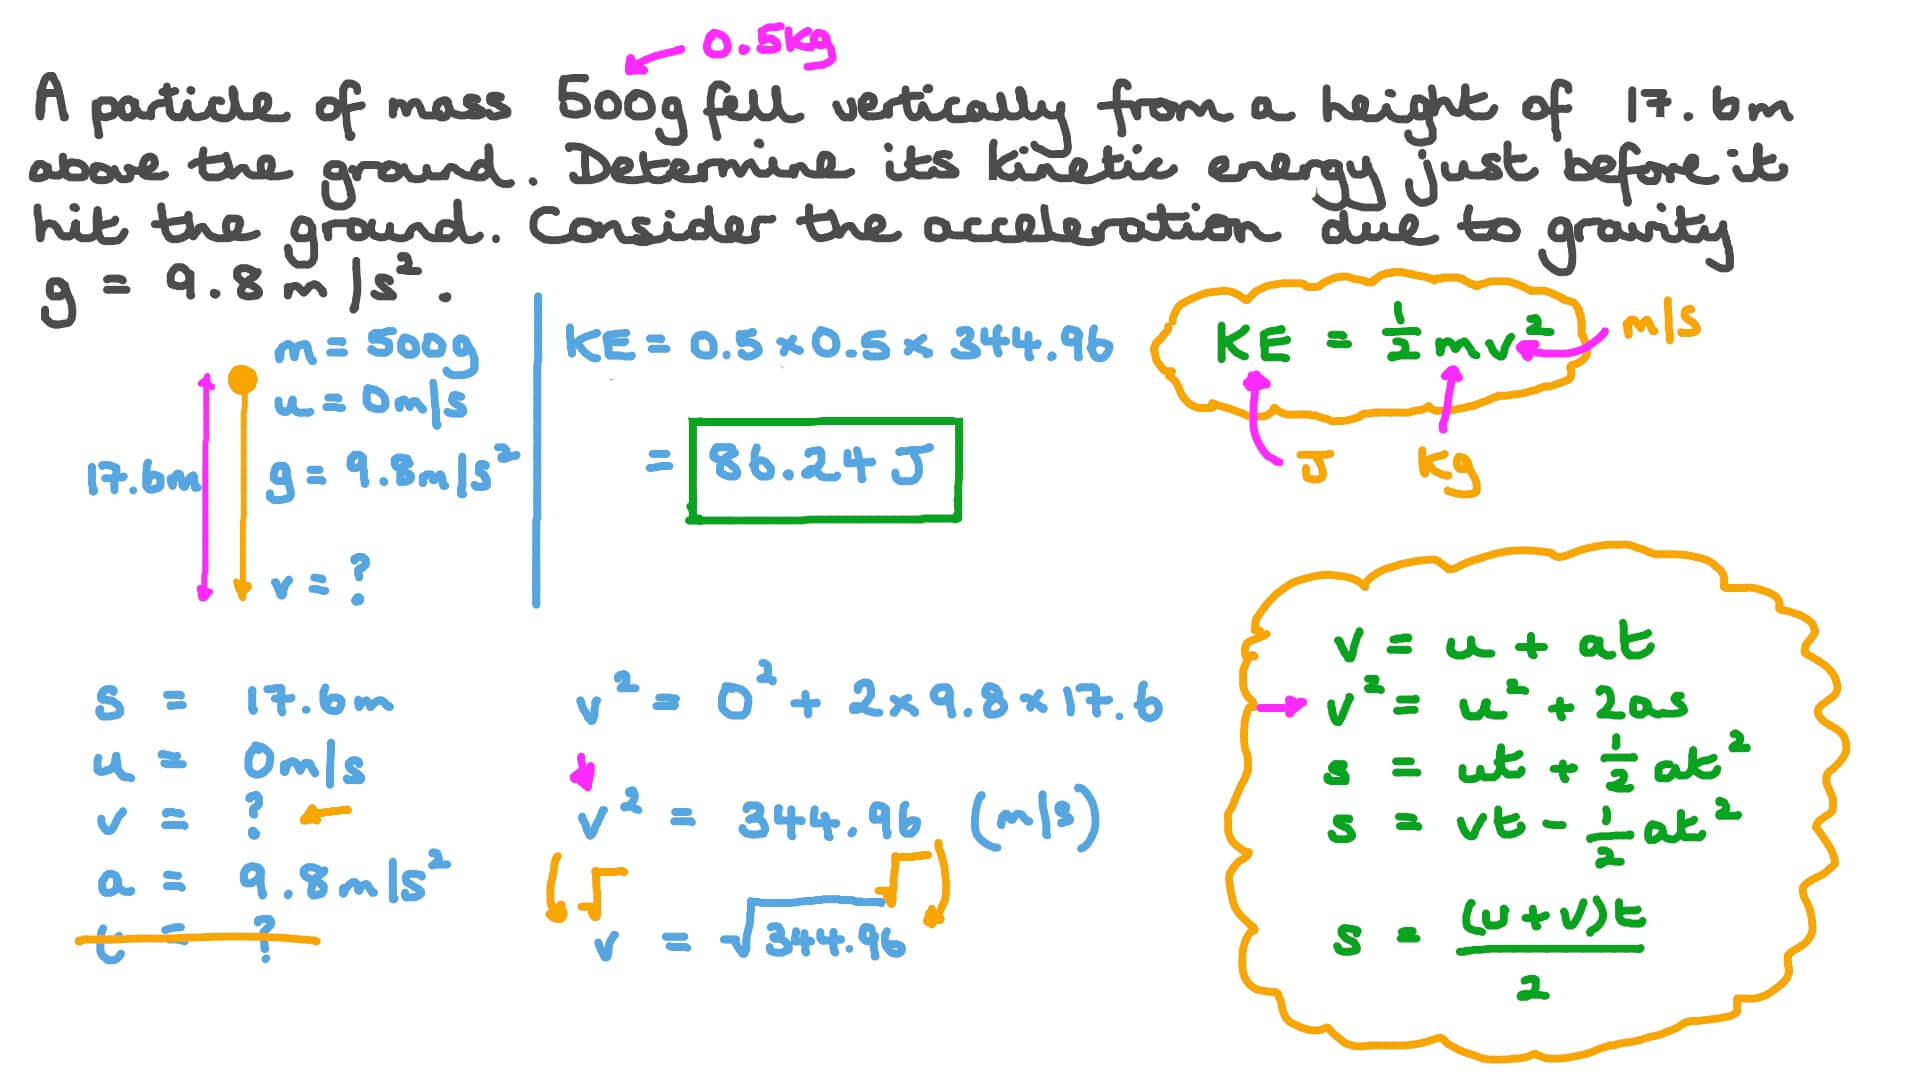 0.5kg
A particle of mass 500g fell vertically from a height of 17.6m
above the ground. Determine its kinetic energy just before it
hit the ground. Consider the acceleration due to gravity
g = 9.8m/s².
m = 500g
u = 0m/s
17.6m
g = 9.8m/s²
v = ?
KE = 0.5 × 0.5 × 344.96
= 86.24 J
KE = ½mv²
m/s
J
kg
s = 17.6m
u = 0m/s
v = ?
a = 9.8m/s²
t = ?
v² = 0² + 2×9.8×17.6
v² = 344.96 (m/s)
√ √
v = √344.96
v = u + at
v² = u² + 2as
s = ut + ½at²
s = vt - ½at²
s = (u+v)t
2